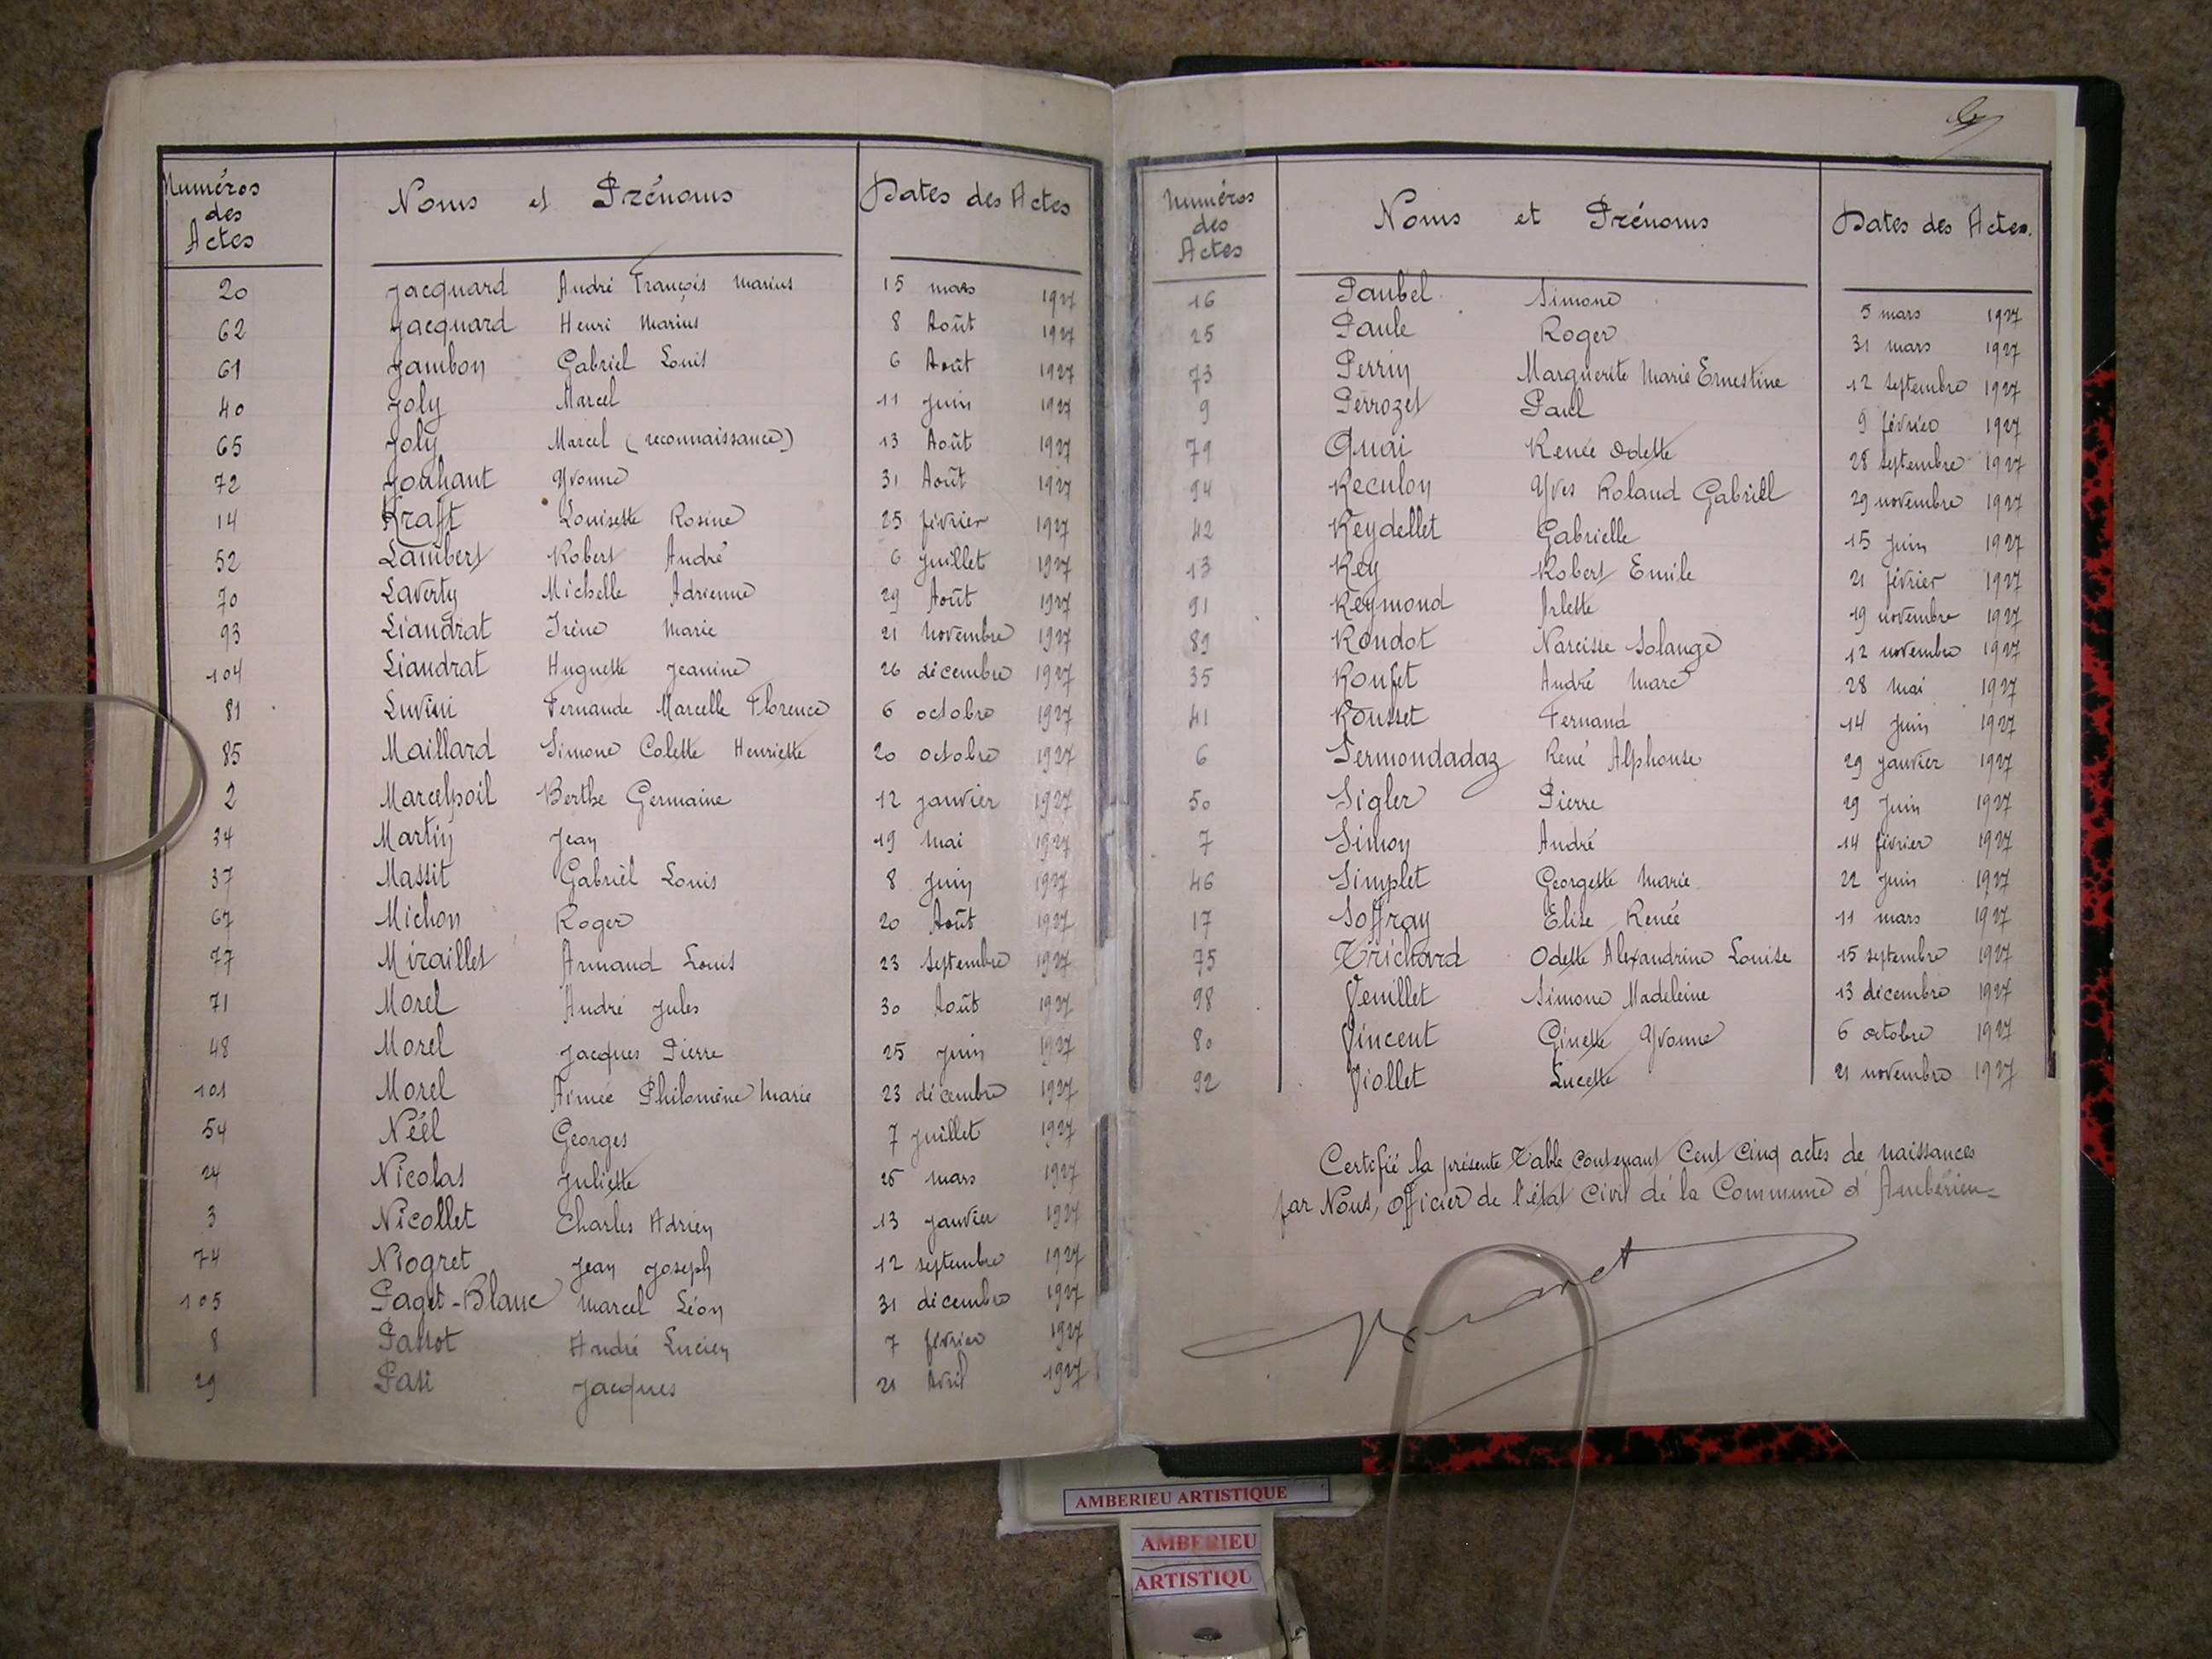 Numéros des Actes Noms et Prénoms Dates des Actes
20 Jacquard André François Marius 15 mars 1927
62 Jacquard Henri Marius 8 Août 1927
61 Jambon Gabriel Louis 6 Août 1927
40 Joly Marcel 11 Juin 1927
65 Joly Marcel (reconnaissance) 13 Août 1927
72 Jouhant Yvonne 31 Août 1927
14 Kraft Louisette Rosine 25 février 1927
52 Lambert Robert André 6 Juillet 1927
70 Laverty Michelle Adrienne 29 Août 1927
93 Liandrat Irène Marie 21 Novembre 1927
104 Liandrat Huguette Jeanine 26 décembre 1927
81 Luvini Fernande Marcelle Florence 6 octobre 1927
85 Maillard Simone Colette Henriette 20 octobre 1927
2 Marcelpoil Berthe Germaine 12 janvier 1927
34 Martin Jean 19 Mai 1927
37 Massit Gabriel Louis 8 Juin 1927
67 Michon Roger 20 Août 1927
77 Miraillet Armand Louis 23 Septembre 1927
71 Morel André Jules 30 Août 1927
48 Morel Jacques Pierre 25 Juin 1927
101 Morel Aimée Philomène Marie 23 décembre 1927
54 Néel Georges 7 Juillet 1927
24 Nicolas Juliette 26 mars 1927
3 Nicollet Charles Adrien 13 janvier 1927
74 Niogret Jean Joseph 12 septembre 1927
105 Paget-Blanc Marcel Léon 31 décembre 1927
8 Passot André Lucien 7 février 1927
29 Pasi Jacques 21 Avril 1927
Numéros des Actes Noms et Prénoms Dates des Actes.
16 Paubel Simone 5 mars 1927
25 Paule Roger 31 mars 1927
73 Perrin Marguerite Marie Ernestine 12 Septembre 1927
9 Perrozet Paul 9 février 1927
79 Quai Renée Odette 28 Septembre 1927
94 Reculon Yves Roland Gabriel 29 novembre 1927
42 Reydellet Gabrielle 15 Juin 1927
13 Rey Robert Emile 21 février 1927
91 Reymond Arlette 19 novembre 1927
89 Rondot Narcisse Solange 12 novembre 1927
35 Roufet André Marc 28 Mai 1927
41 Rousset Fernand 14 Juin 1927
6 Sermondadaz René Alphonse 29 Janvier 1927
50 Sigler Pierre 29 Juin 1927
7 Simon André 14 février 1927
46 Simplet Georgette Marie 22 Juin 1927
17 Soffray Elise Renée 11 mars 1927
75 Trichard Odette Alexandrine Louise 15 septembre 1927
98 Venillet Simone Madeleine 13 décembre 1927
80 Vincent Ginette Yvonne 6 octobre 1927
92 Viollet Lucette 21 novembre 1927
Certifié la présente Table contenant Cent Cinq actes de naissances
par Nous, Officier de l'état Civil de la Commune d'Ambérieu
AMBERIEU ARTISTIQUE
AMBERIEU
ARTISTIQU